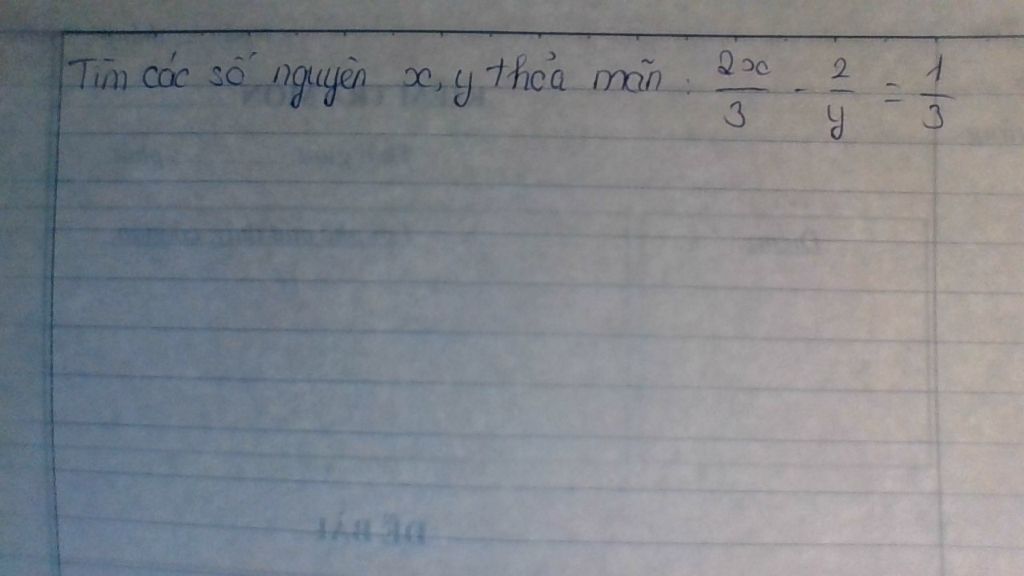 Tìm các số nguyên x, y thỏa mãn : 2x/3 - 2/y = 1/3
ĐỀ BÀI